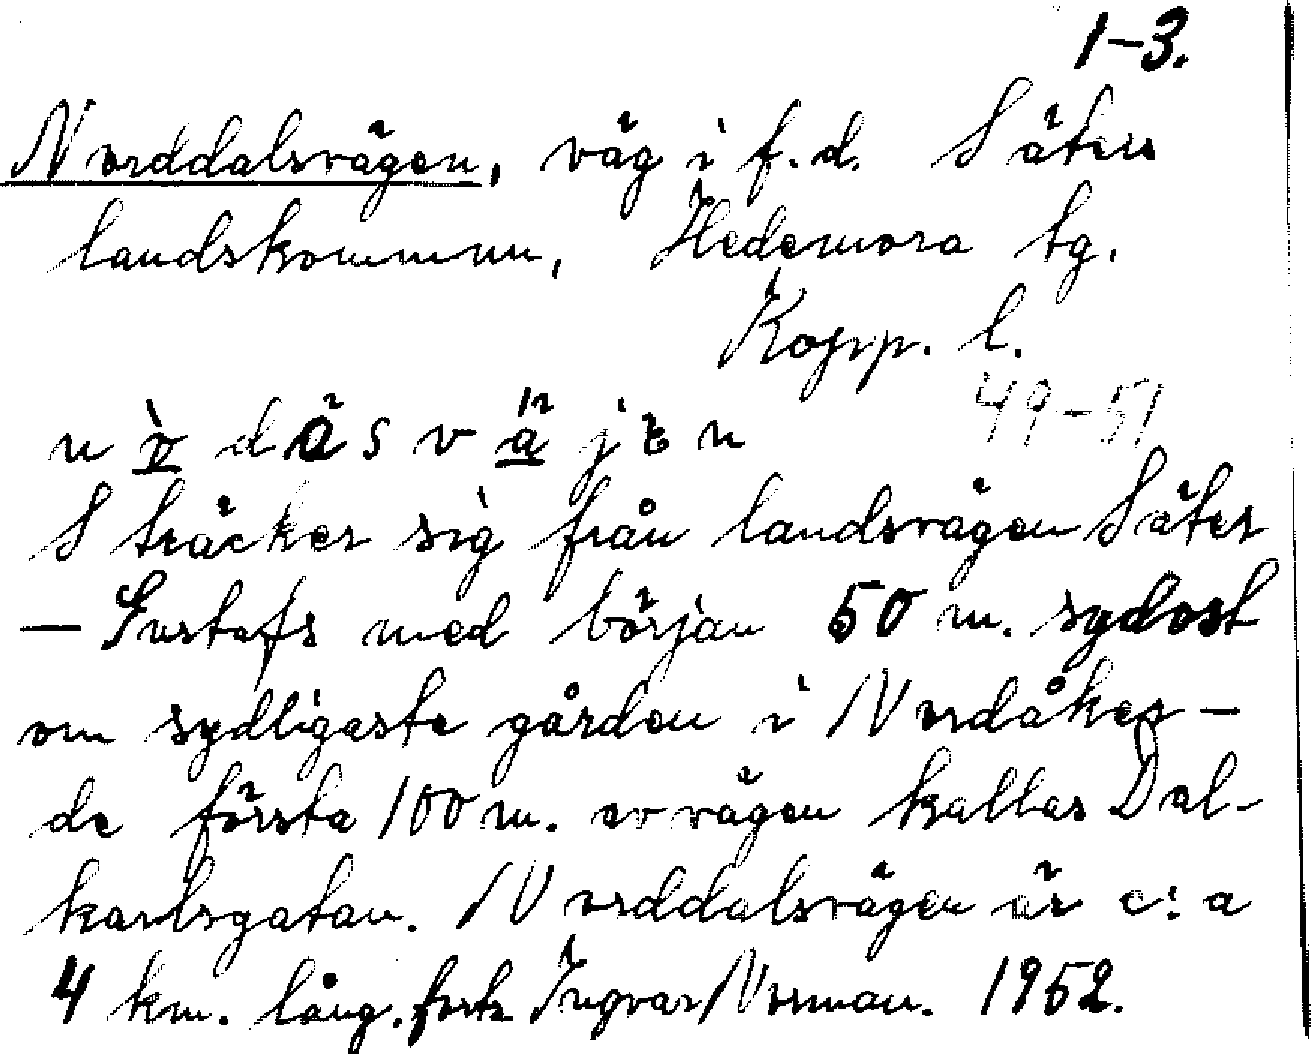 1-3.
Norddalsvägen, väg i f.d. Säters
landskommun, Hedemora tg.
Kopp. l.
49-51
Sträcker sig från landsvägen Säter
– Gustafs med början 50 m. sydost
om sydligaste gården i Nordåker –
de första 100 m. av vägen kallas Dal-
karlsgatan. Norddalsvägen är c:a
4 km. lång. forts Ingvar Norman. 1952.